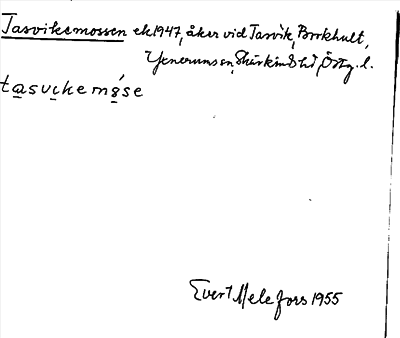 Tasvikemossen ek 1947, åker vid Tasvik, Borkhult,
Yxnerums sn, Skärkinds hd, Östg. l.
tasvikemɷ́se
Evert Melefors 1955